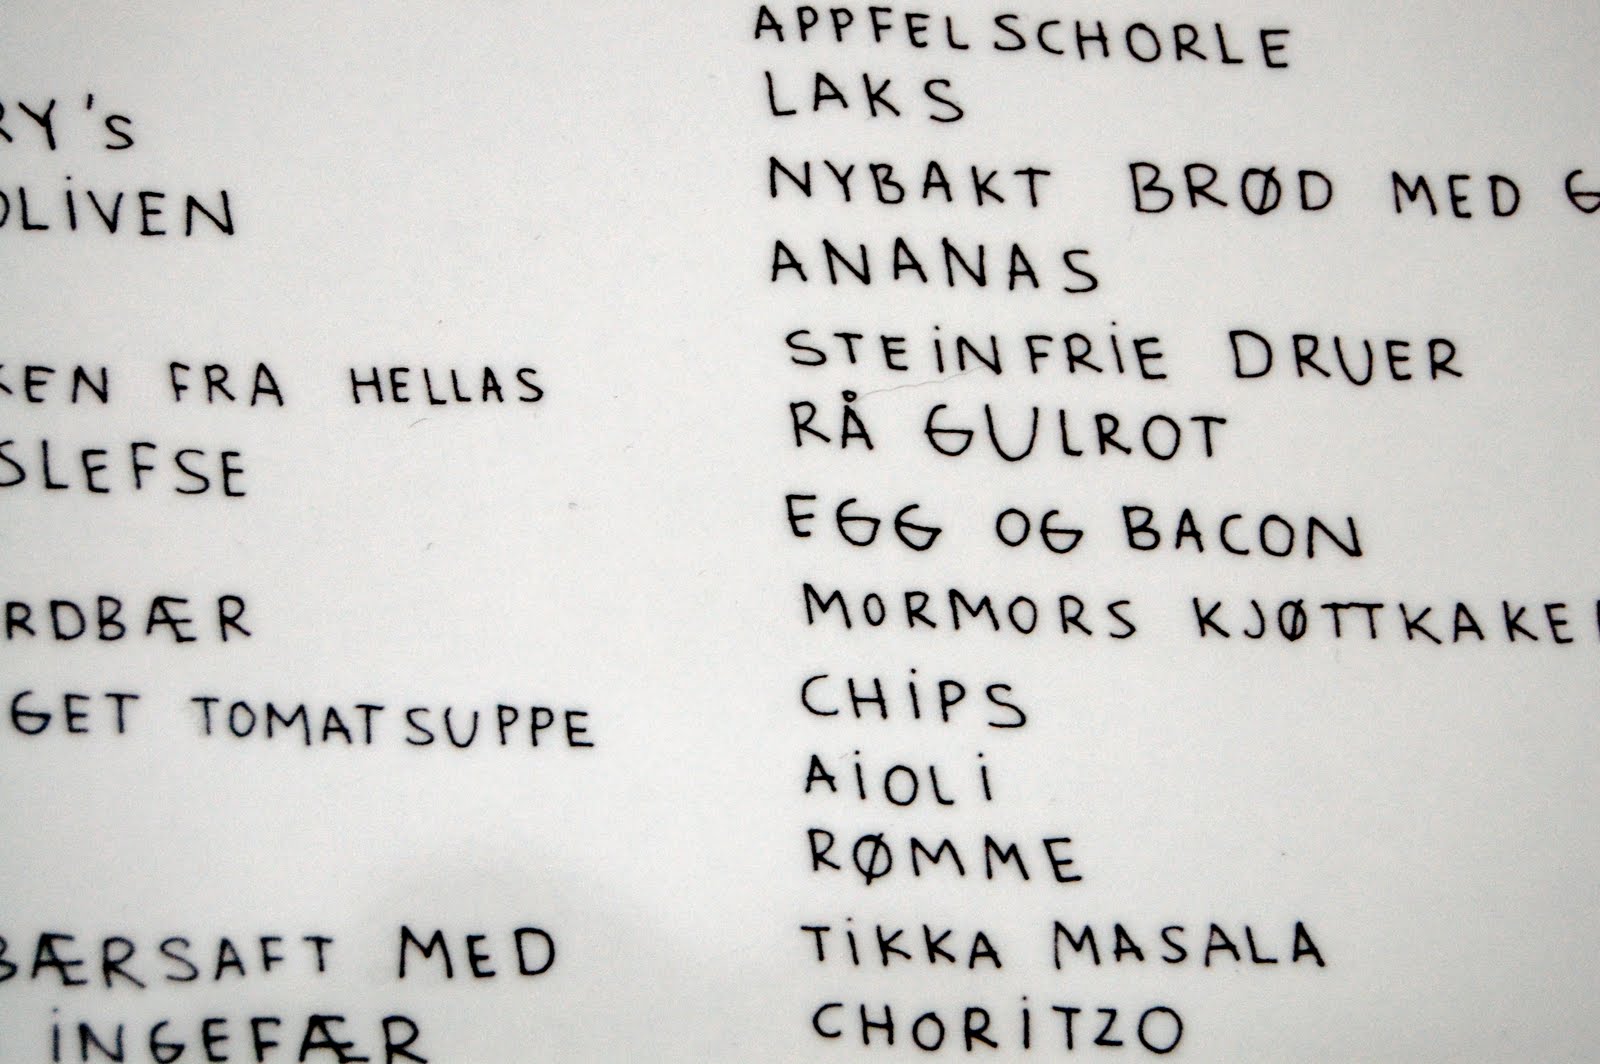 RY's
OLiVEN
KEN FRA HELLAS
SLEFSE
RDBÆR
GET TOMATSUPPE
BÆRSAFT MED
iNGEFÆR
APPFELSCHORLE
LAKS
NYBAKT BRØD MED G
ANANAS
STEiNFRiE DRUER
RÅ GULROT
EGG OG BACON
MORMORS KJØTTKAKER
CHiPS
AiOLi
RØMME
TiKKA MASALA
CHORiTZO